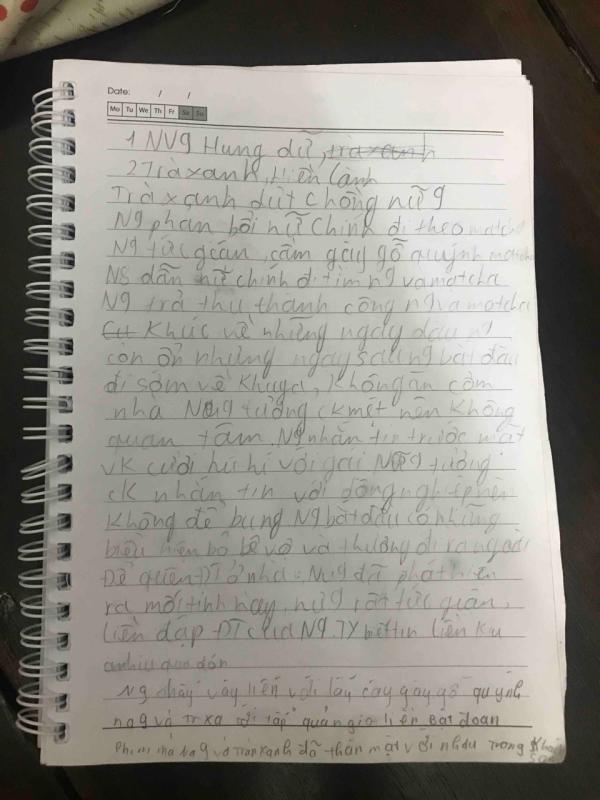 Date: / /
Mo Tu We Th Fr Sa Su
1 NV9 Hung dữ, trà xanh
2 Trà xanh, Hiền lành
Trà xanh dứt chồng nữ 9
N9 phản bội nữ chính đi theo matcha
N9 tức giận, cầm gậy gỗ quýnh matcha
N8 dẫn nữ chính đi tìm n9 và matcha
N9 trả thù thành công n9 và matcha
Khúc về những ngày đầu n9
còn ổn những ngày sau n9 bắt đầu
đi sớm về khuya, không ăn cơm
nhà Nữ9 tưởng ck mệt nên không
quan tâm. N9 nhắn tin trước mặt
vk cười hú hí với gái Nữ9 tưởng
ck nhắn tin với đồng nghiệp nên
không để bụng N9 bắt đầu có những
biểu hiện bỏ bê vợ và thường đi ra ngoài
Để quên ĐT ở nhà. Nữ9 đã phát hiện
ra mối tình này, nữ9 rất tức giận,
liền đập ĐT của N9. TY biết tin liền kêu
qua đón
N9 thấy vậy liền với lấy cây gậy gỗ quýnh
na9 và trxa tới tấp quản gia liền bật đoạn
phim mà Na9 và Trà xanh đã thân mật với nhau trong khách
sạn